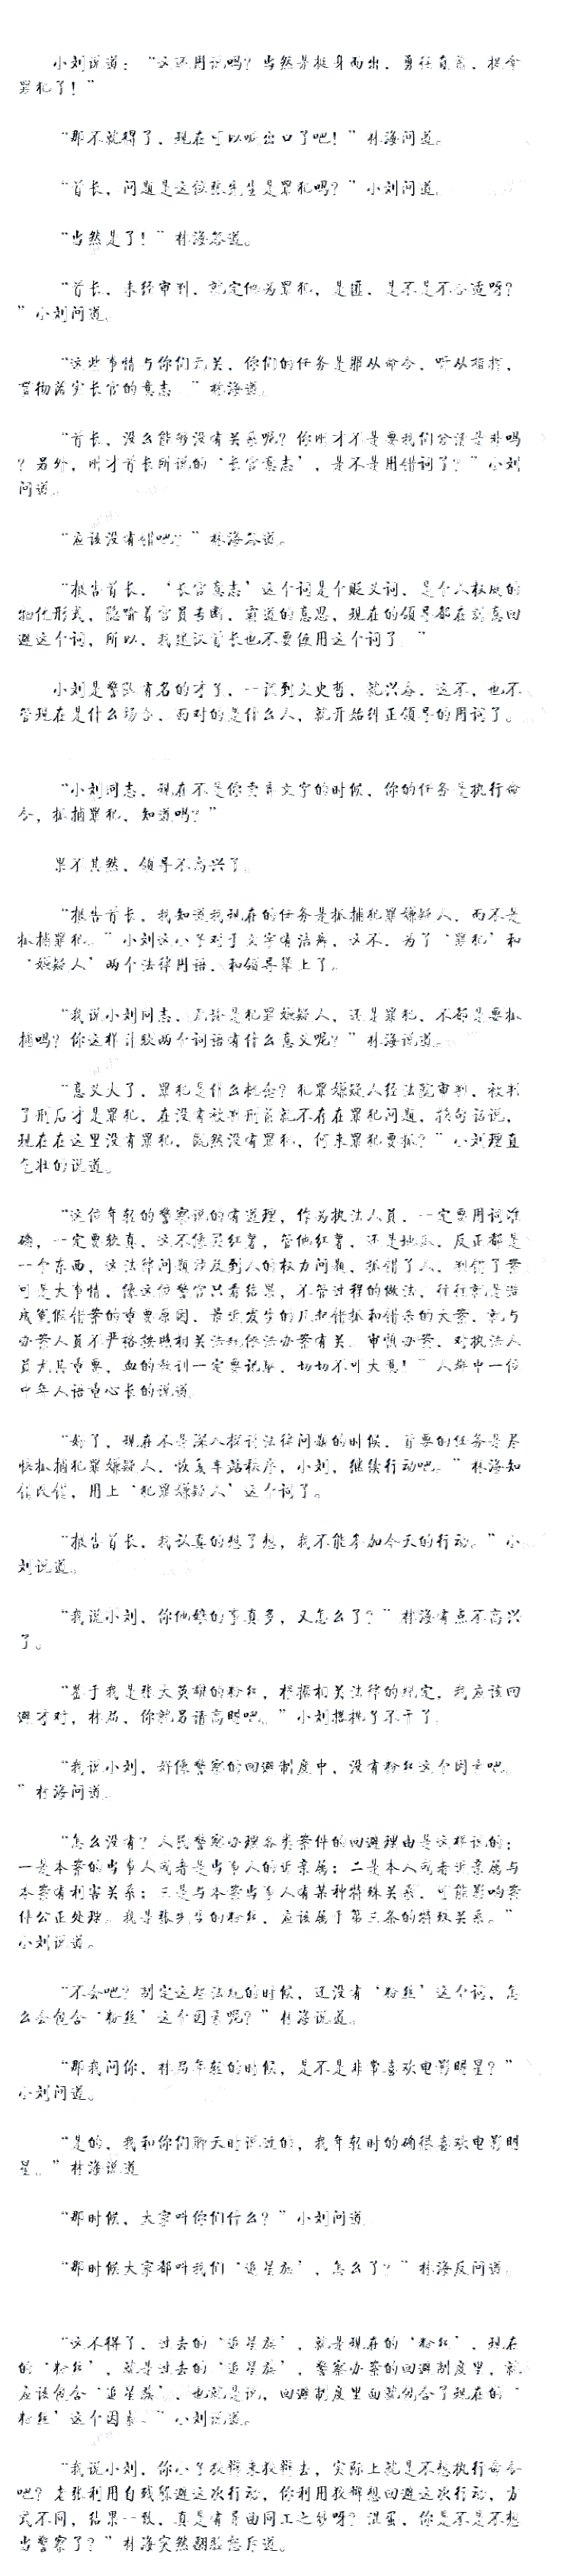 小刘说道：“这还用说吗？当然是挺身而出、勇往直前、捉拿
罪犯了！”
“那不就得了，现在可以喊出口了吧！”林海问道。
“首长，问题是这位张先生是罪犯吗？”小刘问道。
“当然是了！”林海答道。
“首长，未经审判，就定他为罪犯，是匪，是不是不合适呀？
”小刘问道。
“这些事情与你们无关，你们的任务是服从命令，听从指挥，
贯彻落实长官的意志。”林海道。
“首长，没么能够没有关系呢？你刚才不是要我们分清是非吗
？另外，刚才首长所说的‘长官意志’，是不是用错词了？”小刘
问道。
“应该没有错吧？”林海答道。
“报告首长，‘长官意志’这个词是个贬义词，是个人权威的
物化形式，隐喻着官员专断、霸道的意思，现在的领导都在刻意回
避这个词，所以，我建议首长也不要使用这个词了。”
小刘是警队有名的才子，一谈到文史哲，就兴奋，这不，也不
管现在是什么场合、面对的是什么人，就开始纠正领导的用词了。
“小刘同志，现在不是你卖弄文字的时候，你的任务是执行命
令，抓捕罪犯，知道吗？”
果不其然，领导不高兴了。
“报告首长，我知道我现在的任务是抓捕犯罪嫌疑人，而不是
抓捕罪犯。”小刘这小子对于文字有洁癖，这不，为了‘罪犯’和
‘嫌疑人’两个法律用语，和领导犟上了。
“我说小刘同志，无论是犯罪嫌疑人，还是罪犯，不都是要抓
捕吗？你这样计较两个词语有什么意义呢？”林海说道。
“意义大了，罪犯是什么概念？犯罪嫌疑人经法院审判，被判
了刑后才是罪犯，在没有被判刑前就不存在罪犯问题，换句话说，
现在在这里没有罪犯，既然没有罪犯，何来罪犯要抓？”小刘理直
气壮的说道。
“这位年轻的警察说的有道理，作为执法人员，一定要用词准
确，一定要较真，这不像买红薯，管他红薯，还是地瓜，反正都是
一个东西，这法律问题涉及到人的权力问题，抓错了人，判错了案
可是大事情，像这位警官只看结果，不管过程的做法，往往就是造
成冤假错案的重要原因，最近发生的几起错抓和错杀的大案，就与
办案人员不严格按照相关法规依法办案有关，审慎办案，对执法人
员尤其重要，血的教训一定要记取，切切不可大意！”人群中一位
中年人语重心长的说道
“好了，现在不是深入探讨法律问题的时候，首要的任务是尽
快抓捕犯罪嫌疑人，恢复车站秩序，小刘，继续行动吧。”林海知
错改错，用上‘犯罪嫌疑人’这个词了。
“报告首长，我认真的想了想，我不能参加今天的行动。”小
刘说道。
“我说小刘，你他娘的事真多，又怎么了？”林海有点不高兴
了。
“鉴于我是张大英雄的粉丝，根据相关法律的规定，我应该回
避才对，林局，你就另请高明吧。”小刘摆挑子不干了。
“我说小刘，好像警察的回避制度中，没有粉丝这个因素吧。
”林海问道。
“怎么没有？人民警察办理各类案件的回避理由是这样说的：
一是本案的当事人或者是当事人的近亲属；二是本人或者近亲属与
本案有利害关系；三是与本案当事人有某种特殊关系，可能影响案
件公正处理。我是张先生的粉丝，应该属于第三条的特殊关系。”
小刘说道。
“不会吧？制定这些法规的时候，还没有‘粉丝’这个词，怎
么会包含‘粉丝’这个因素呢？”林海说道。
“那我问你，林局年轻的时候，是不是非常喜欢电影明星？”
小刘问道。
“是的，我和你们聊天时说过的，我年轻时的确很喜欢电影明
星。”林海说道
“那时候，大家叫你们什么？”小刘问道
“那时候大家都叫我们‘追星族’，怎么了？”林海反问道。
“这不得了，过去的‘追星族’，就是现在的‘粉丝’，现在
的‘粉丝’，就是过去的‘追星族’，警察办案的回避制度里，就
应该包含‘追星族’，也就是说，回避制度里面就包含了现在的‘
粉丝’这个因素。”小刘说道。
“我说小刘，你小子狡辩来狡辩去，实际上就是不想执行命令
吧？老张利用自残躲避这次行动，你利用狡辩想回避这次行动，方
式不同，结果一致，真是有异曲同工之妙呀？混蛋，你是不是不想
当警察了？”林海突然翻脸怒斥道。